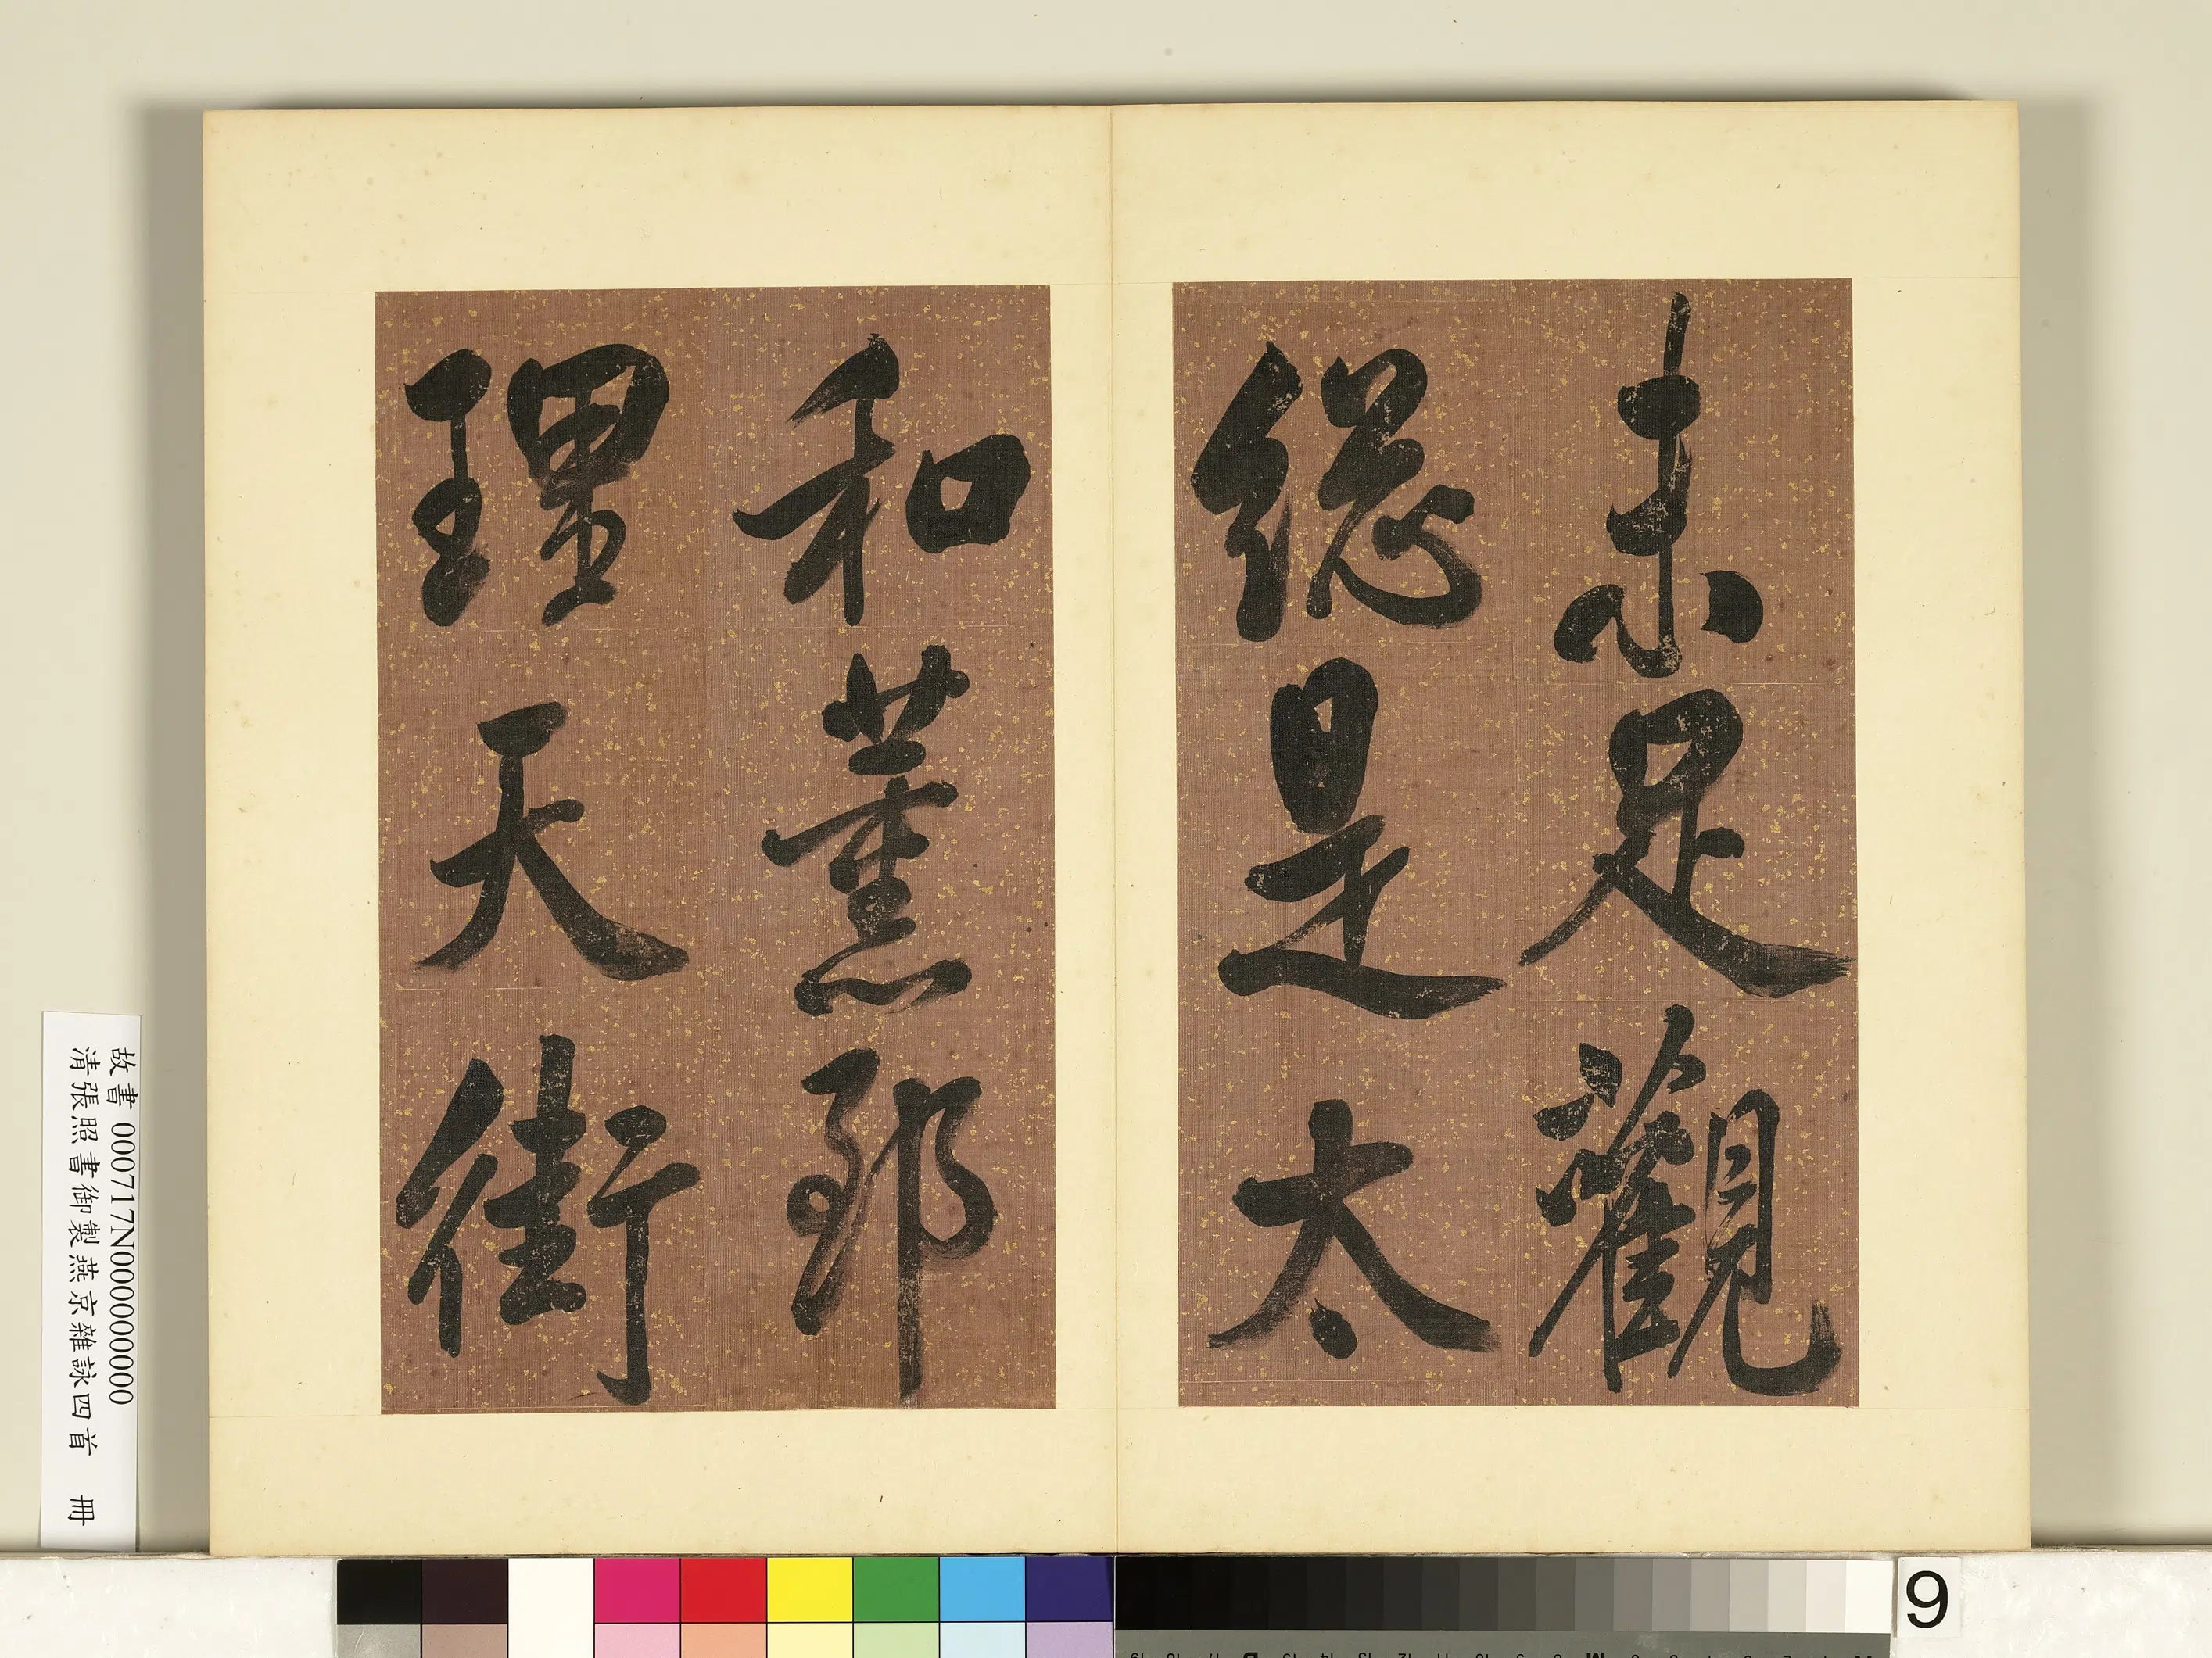 未足觀
總是太
和薰邪
理天街
故書 000717N000000000
清張照書御製燕京雜詠四首 冊
9